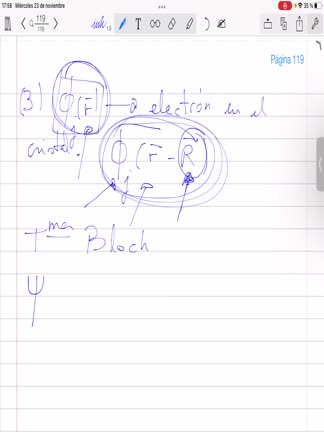 17:58 Miércoles 23 de noviembre
35 %
119
119
1.5
T
Página 119
(3) ϕ_j(r̄) → electrón en el
cristal.
ϕ_j(r̄ - R̄)
Tma Bloch
Ψ